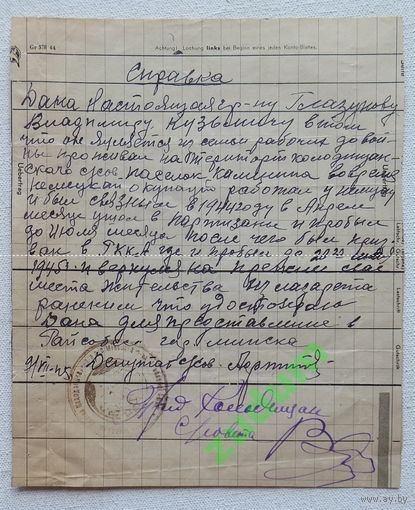 Gr 578 44
Achtung! Lochung links bei Beginn eines jeden Konto-Blattes.
Справка
Дана Настоящая гр-ну Глазунову
Владимиру Кузьмичу в том
что он является из семьи рабочих до вой-
ны проживал на территории Колодищан-
ского с/сов. поселок Калинина во время
немецкой окупации работал у немцев
и был связным в 1944 году в Апреле
месяце ушол в партизаны и пробыл
до Июля месяца после чего был приз-
ван в РККА где и пробыл до 22
1945 г. и вернулся на прежнее свое
места жительства из лазарета
ранением что удостоверяю
Дана для предоставление в
гор минска
Депутат с/сов.
Пред Колодищан
С/Совета
zaduma
Uebertrag
www.ay.by